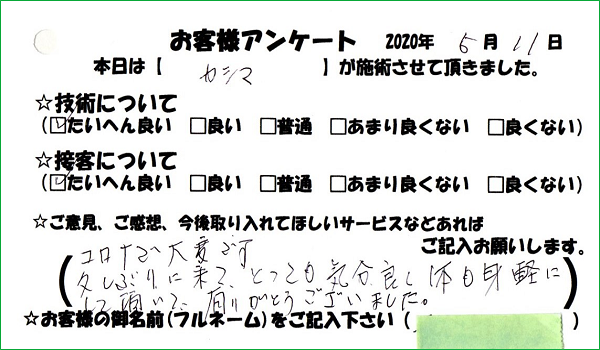 お客様アンケート 2020年 5月 11日
本日は【 カシマ 】が施術させて頂きました。
☆技術について
(☑たいへん良い □良い □普通 □あまり良くない □良くない)
☆接客について
(☑たいへん良い □良い □普通 □あまり良くない □良くない)
☆ご意見、ご感想、今後取り入れてほしいサービスなどあれば
ご記入お願いします。
コロナで大変です
久しぶりに来て、とっても気分良く体も身軽に
して頂いて、有りがとうございました。
☆お客様の御名前(フルネーム)をご記入下さい( )